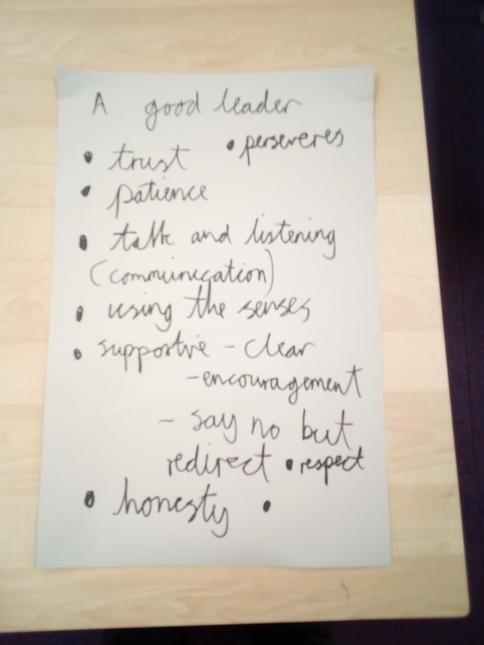 A good leader
• perseveres
• trust
• patience
• talk and listening
(communication)
• using the senses
• supportive - clear
- encouragement
- say no but
redirect • respect
• honesty •